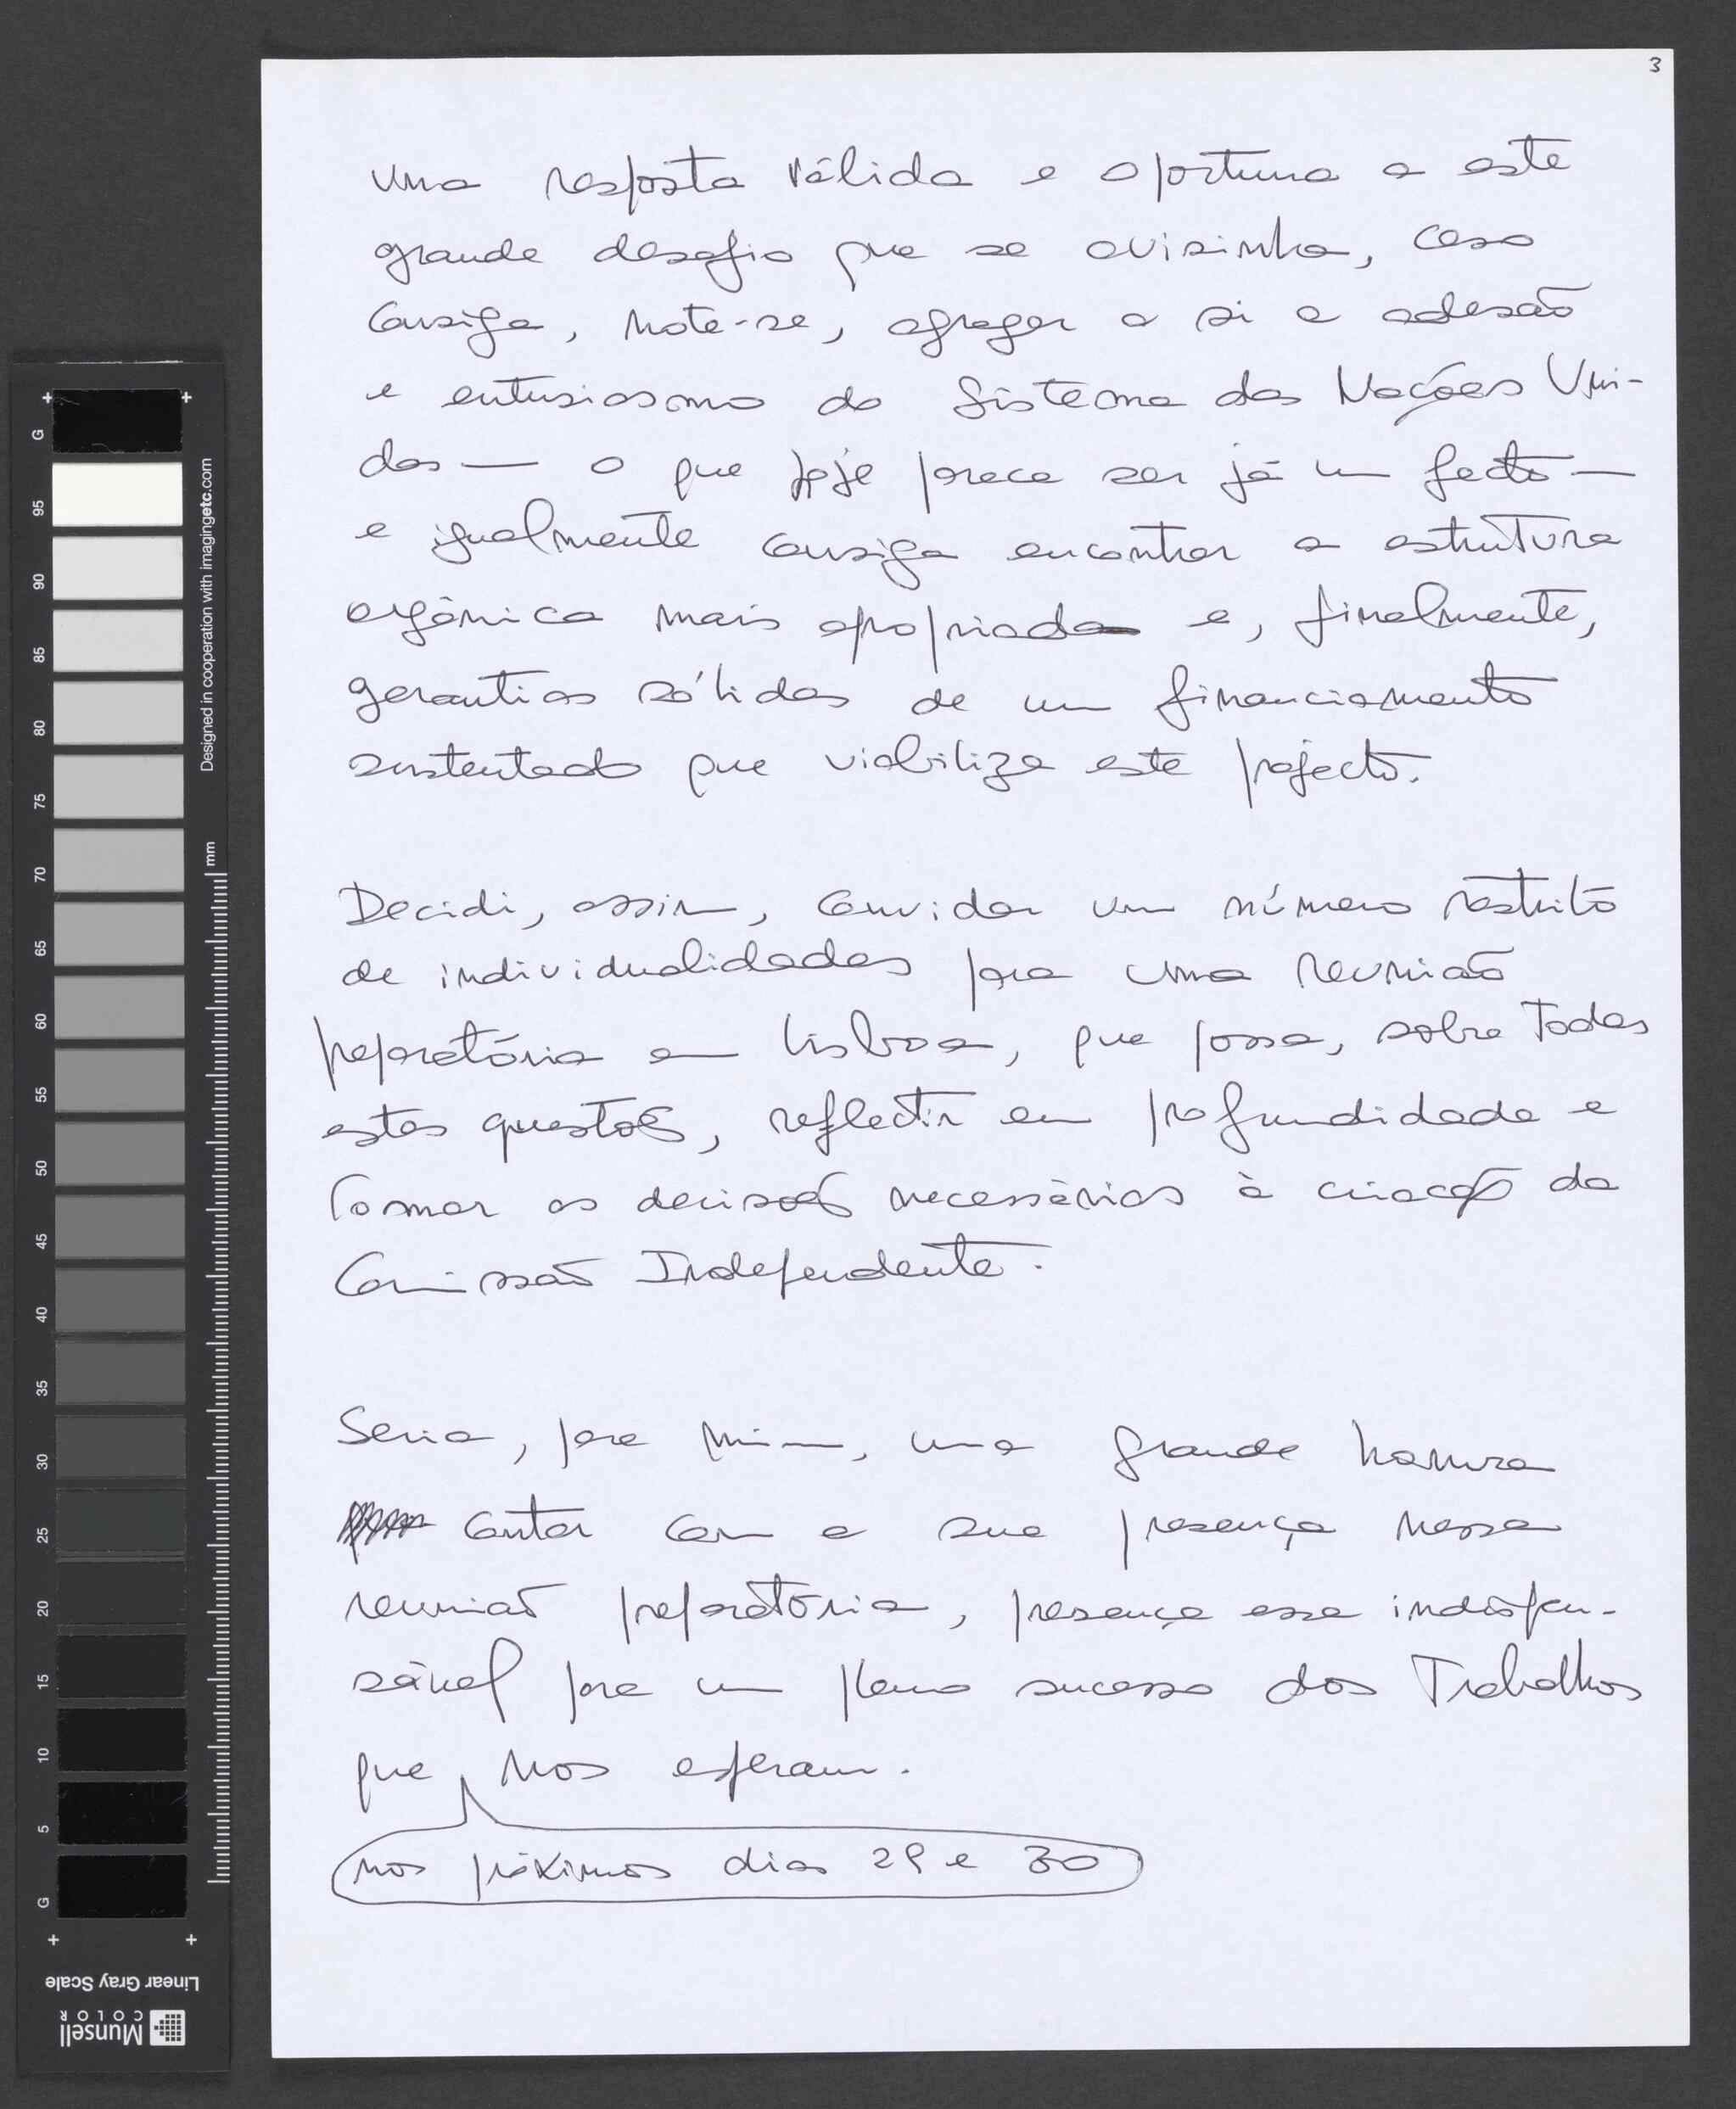 3
uma resposta válida e oportuna a este
grande desafio que se avisinha, caso
consiga, note-se, agregar a si a adesão
e entusiasmo do Sistema das Nações Uni-
das — o que hoje parece ser já um facto —
e igualmente consiga encontrar a estrutura
orgânica mais apropriada e, finalmente,
garantias sólidas de um financiamento
sustentado que viabilize este projecto.
Decidi, assim, convidar um número restrito
de individualidades para uma reunião
preparatória em Lisboa, que possa, sobre todas
estas questões, reflectir em profundidade e
tomar as decisões necessárias à criação da
Comissão Independente.
Seria, para mim, uma grande honra
contar com a sua presença nessa
reunião preparatória, presença essa indispen-
sável para um pleno sucesso dos Trabalhos
que nos esperam.
nos próximos dias 29 e 30
G
95
90
85
80
75
70
65
60
55
50
45
40
35
30
25
20
15
10
5
G
Designed in cooperation with imagingetc.com
mm
Linear Gray Scale
Munsell
COLOR